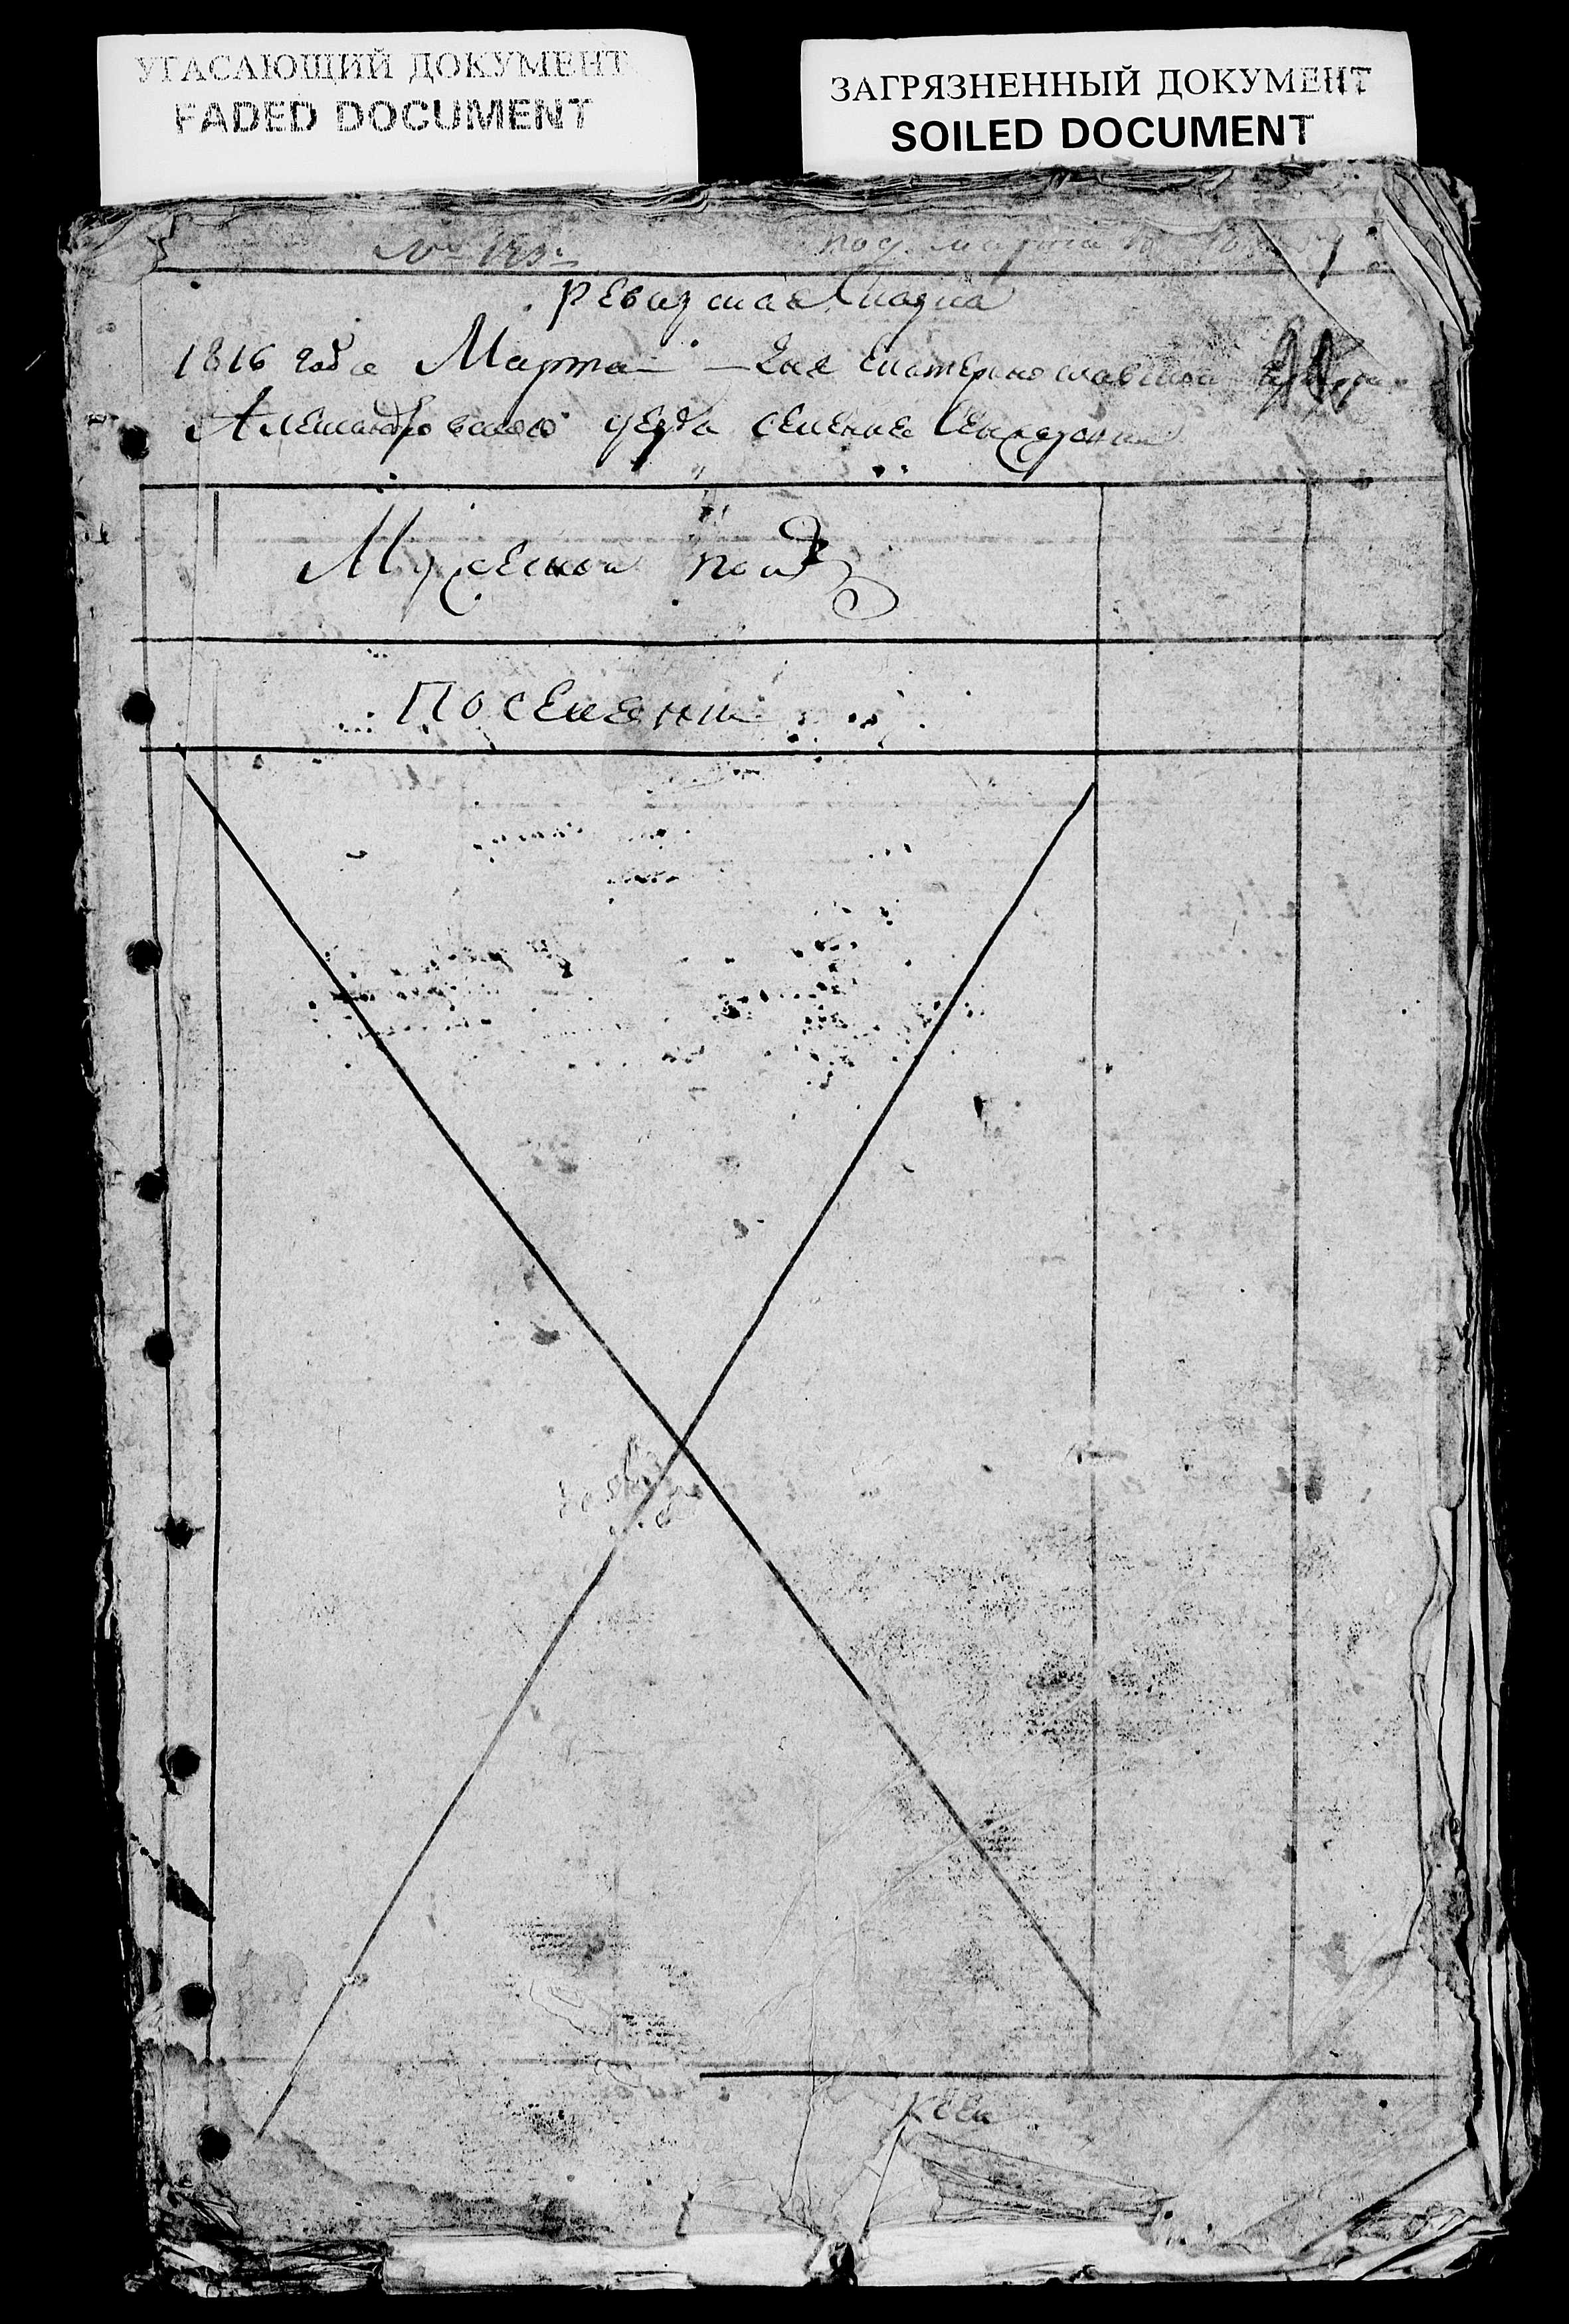 УГАСАЮЩИЙ ДОКУМЕНТ
FADED DOCUMENT
ЗАГРЯЗНЕННЫЙ ДОКУМЕНТ
SOILED DOCUMENT
№
под. марта
Ревизская Сказка
1816 года Марта — дня Екатеринославской
Александровского уезда селения
Мужеской полъ
Поселяни